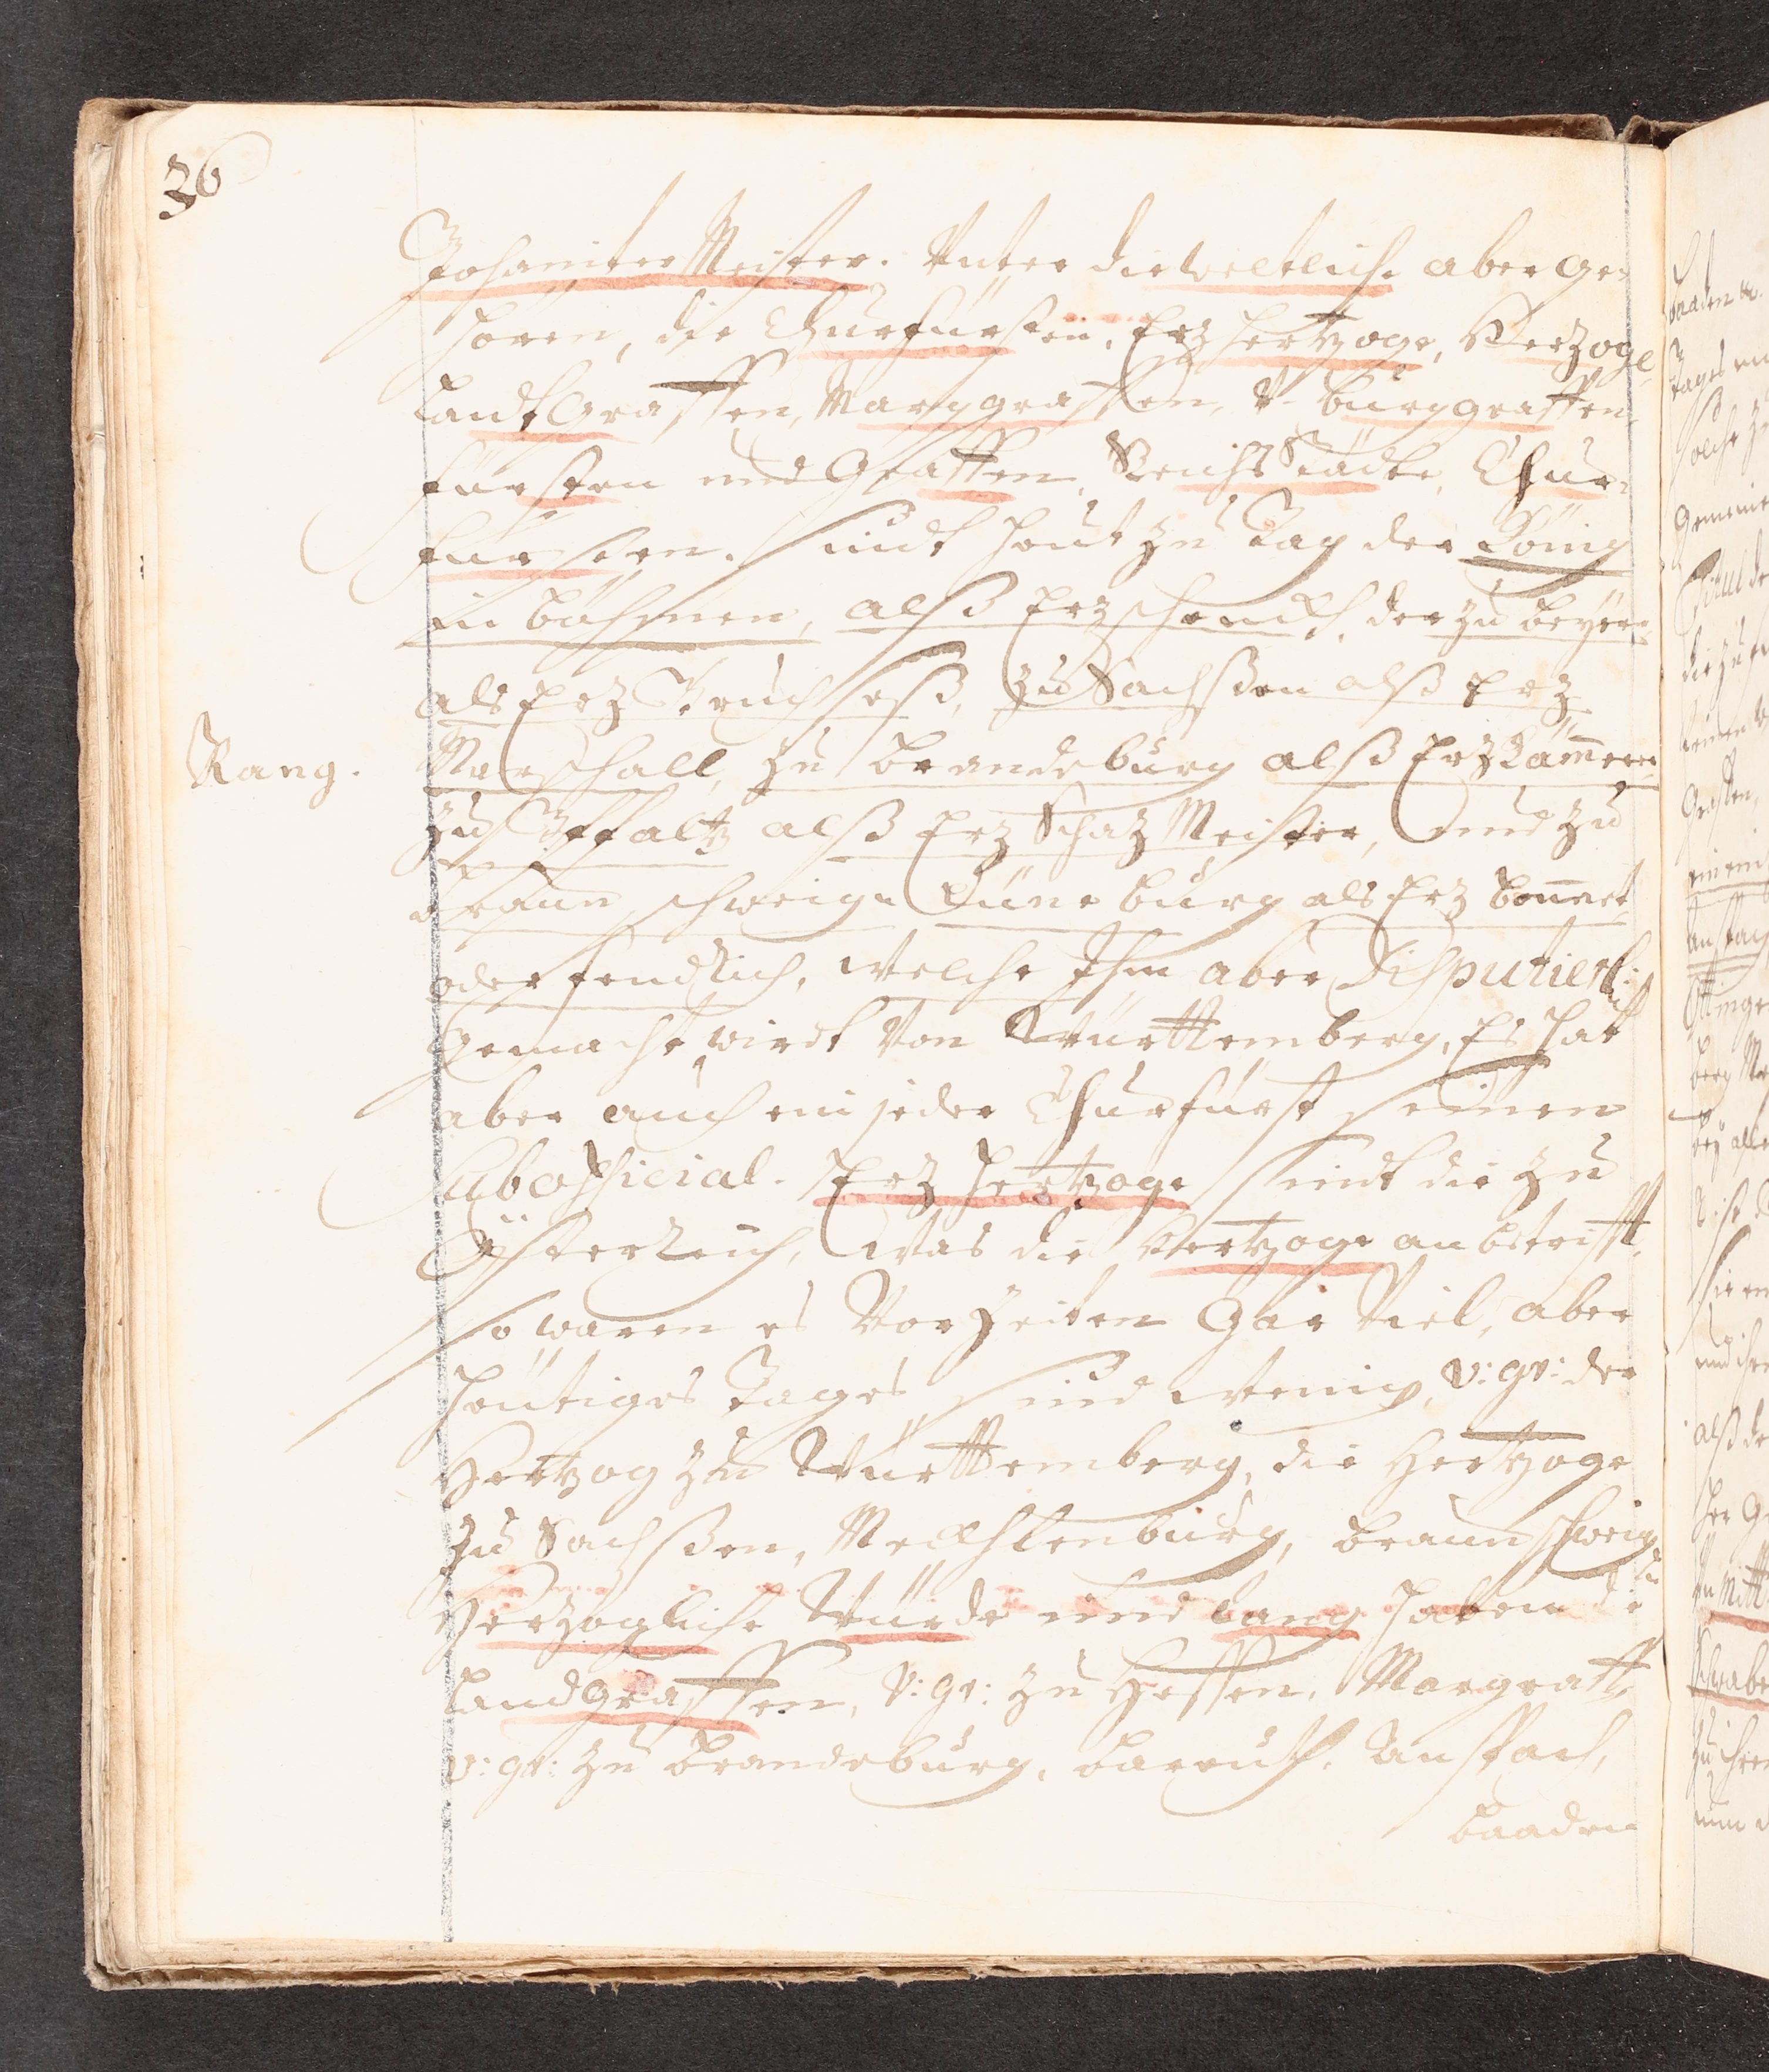 36
Johaniter Meister. Unter die weltliche aber ge-
hören, die Churfürsten, Erz Hertzoge, Herzoge,
Landt Graffen, Marggraffen, V. Burggraffen,
Fürsten und Graffen, Reichs Städte, Chur-
fürsten. sindt heut zu Tag der König
in Böhmen, alß Erzschenckh, der zu Beyern
als Erz Truchseß, zu Sachßen alß Erz
Rang.
Marschall, zu Brandeburg alß Erzkämmerer
zu Pfaltz alß Erz Schaz Meister, und zu
Braunschweig Lüneburg als Erz Bannert
oder fendrich, welche Ihm aber Disputierlich
gemacht wirdt von Württemberg, Es hat
aber auch ein jeder Churfürst seinen
Subofficial. Erz Hertzoge sindt die zu
Össterreich, Was die Hertzoge anbetrifft,
so waren es Vorzeiten Gar Viel, aber
heütiges Tages sind wenig, v: gr: der
Hertzog zu Württemberg, die Hertzoge
zu Sachßen, Mechlenburg, Braunschweig
Herzogliche Würde und Rang haben die
Landgraffen, V: gr: zu Hessen, Margraffe
v: gr: zu Brandeburg, Bareuth, Anspach,
Baaden